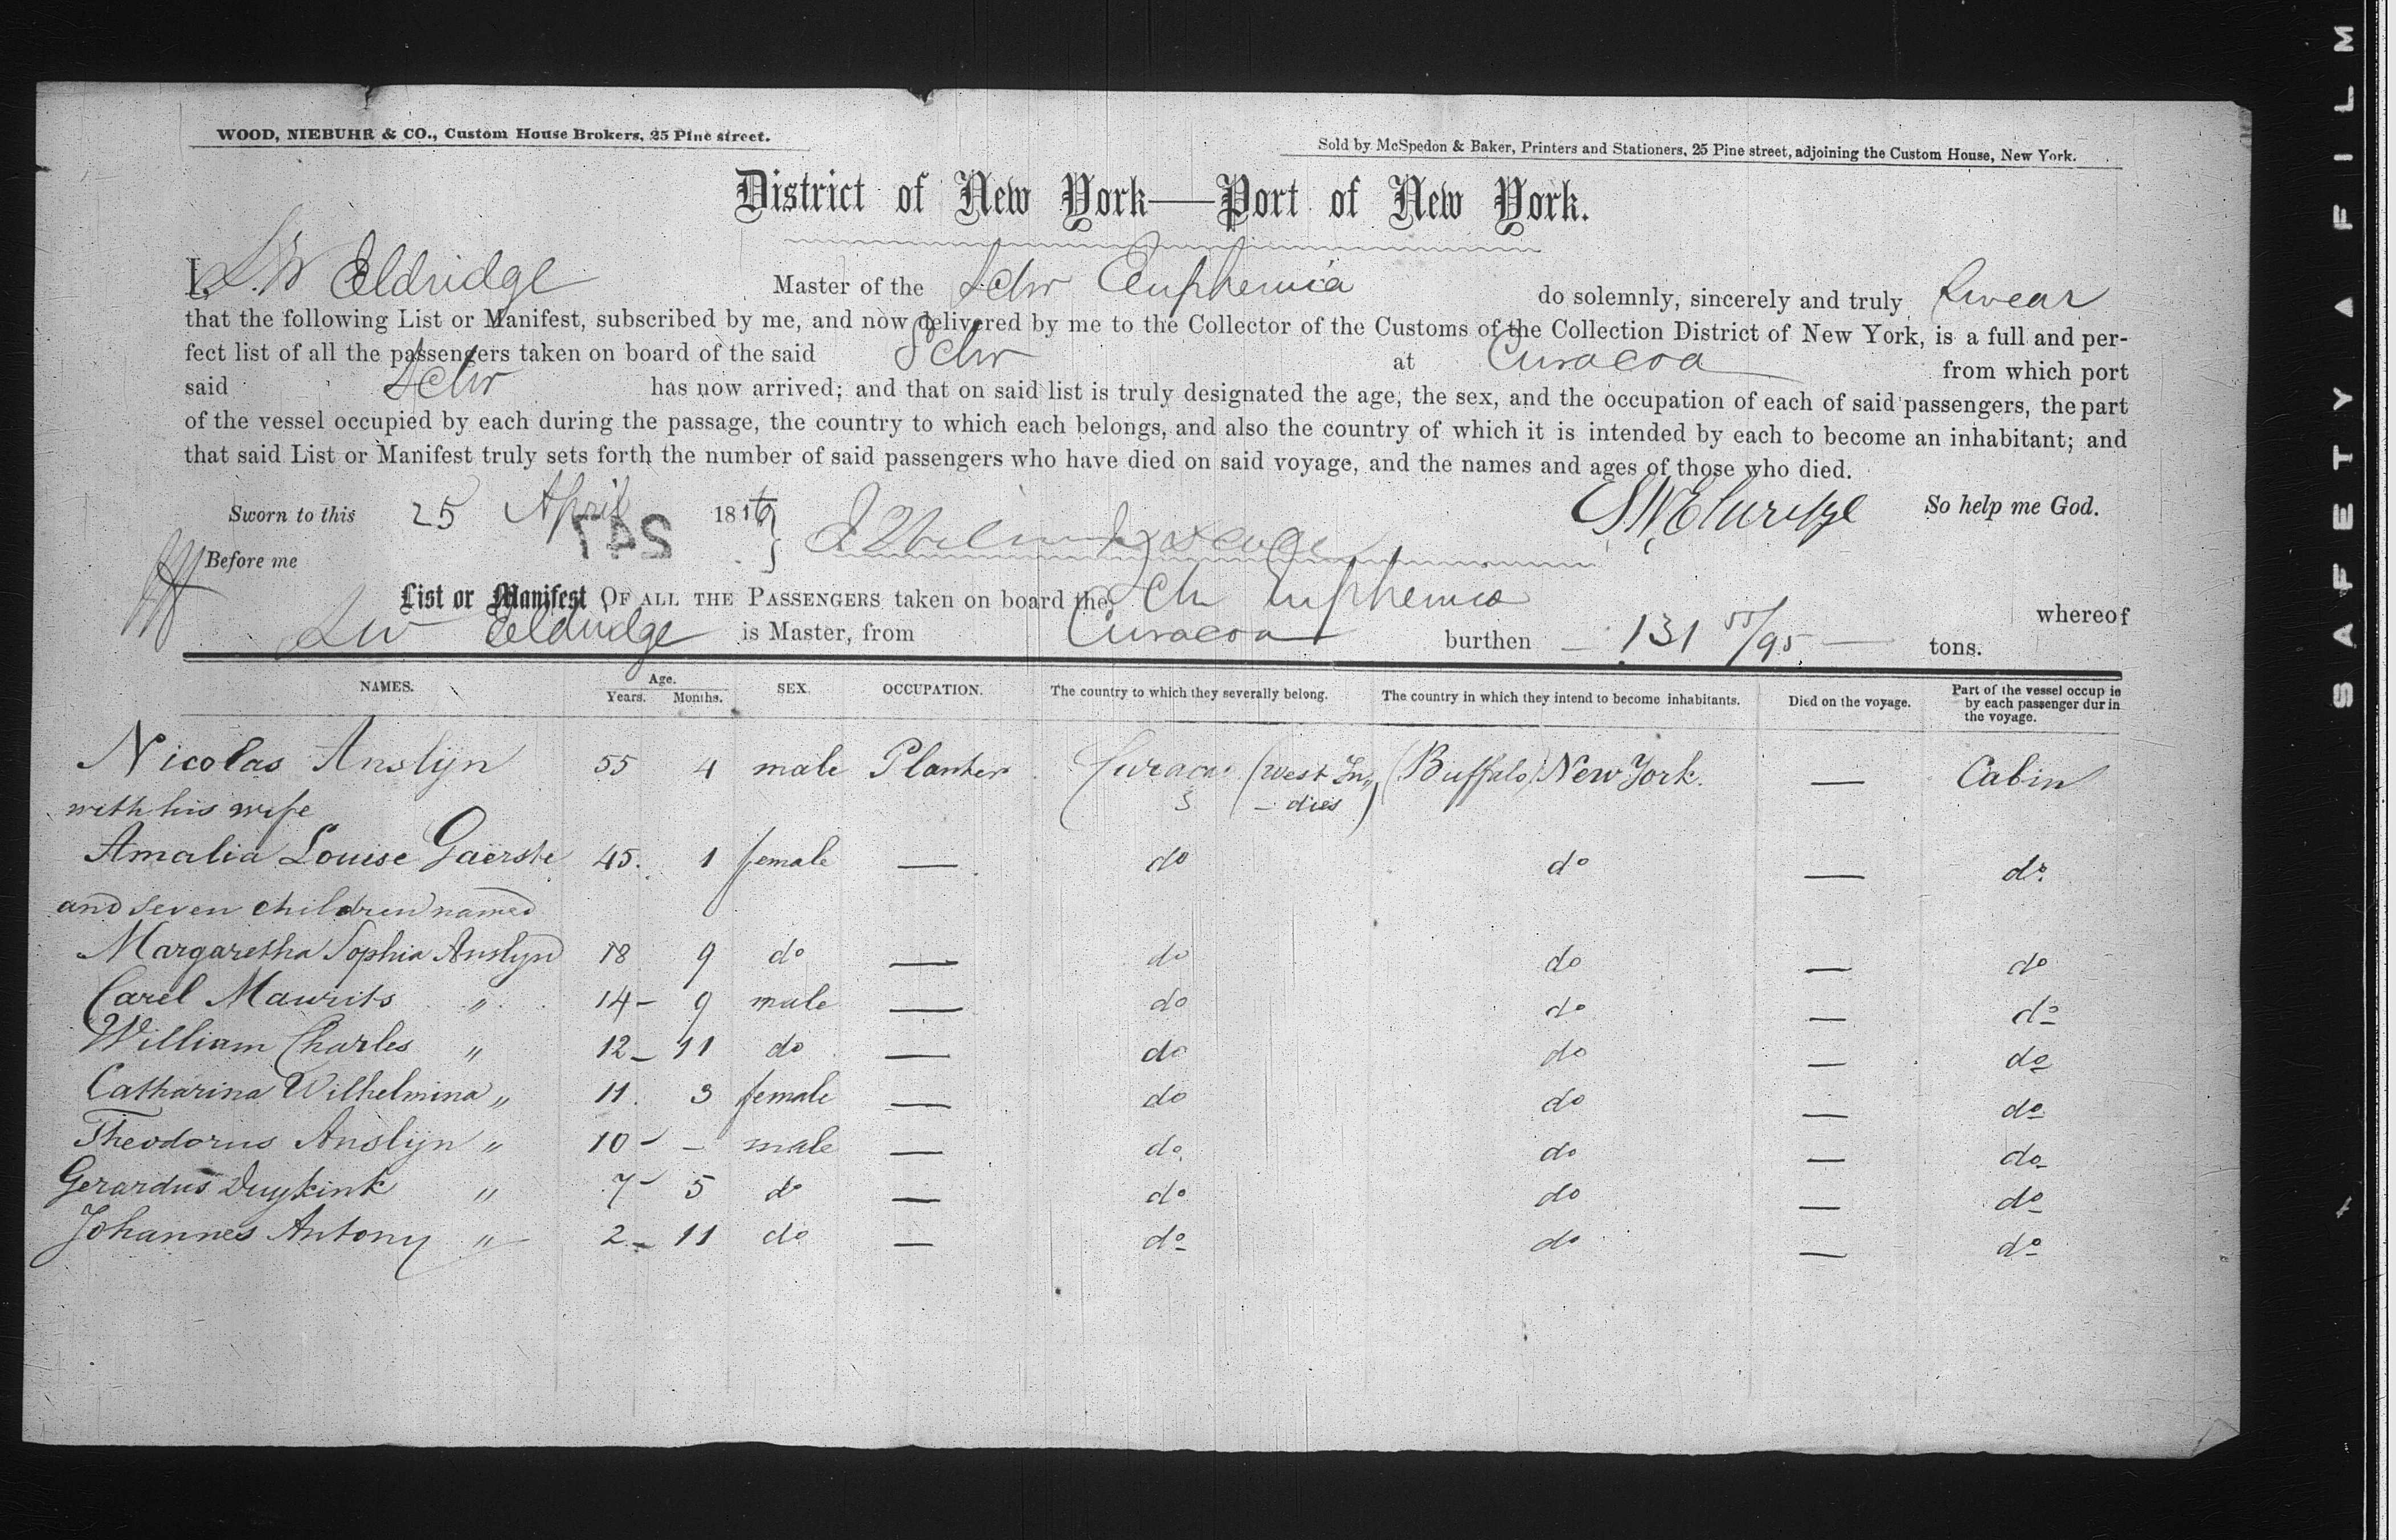 WOOD, NIEBUHR & CO., Custom House Brokers, 25 Pine street.
Sold by McSpedon & Baker, Printers and Stationers, 25 Pine street, adjoining the Custom House, New York.
District of New York—Port of New York.
I, L.W Eldridge Master of the Schr Euphemia do solemnly, sincerely and truly swear
that the following List or Manifest, subscribed by me, and now delivered by me to the Collector of the Customs of the Collection District of New York, is a full and per-
fect list of all the passengers taken on board of the said Schr at Curacoa from which port
said Schr has now arrived; and that on said list is truly designated the age, the sex, and the occupation of each of said passengers, the part
of the vessel occupied by each during the passage, the country to which each belongs, and also the country of which it is intended by each to become an inhabitant; and
that said List or Manifest truly sets forth the number of said passengers who have died on said voyage, and the names and ages of those who died.
Sworn to this 25 April 18 So help me God.
247
Before me
List or Manifest OF ALL THE PASSENGERS taken on board the Sch Euphemia whereof
LW Eldridge is Master, from Curacoa burthen 131 55/95 tons.
NAMES. Age. Years. Months. SEX. OCCUPATION. The country to which they severally belong. The country in which they intend to become inhabitants. Died on the voyage. Part of the vessel occup ie by each passenger dur in the voyage.
Nicolas Anslijn 55 4 male Planter Curacao (West In„ dies) (Buffalo) New York. — Cabin
with his wife
Amalia Louise Gaerste 45. 1 female — do do — do.
and seven children named
Margaretha Sophia Anslyn 18 9 do — do do — do
Carel Maurits „ 14 – 9 male — do do — do
William Charles „ 12 – 11 do — do do — do
Catharina Wilhelmina „ 11. 3 female — do do — do
Theodorus Anslijn „ 10 – – male — do. do — do
Gerardus Duykink „ 7 – 5 do — do do — do
Johannes Antony „ 2 – 11 do — do do — do
SAFETY ▲ FILM